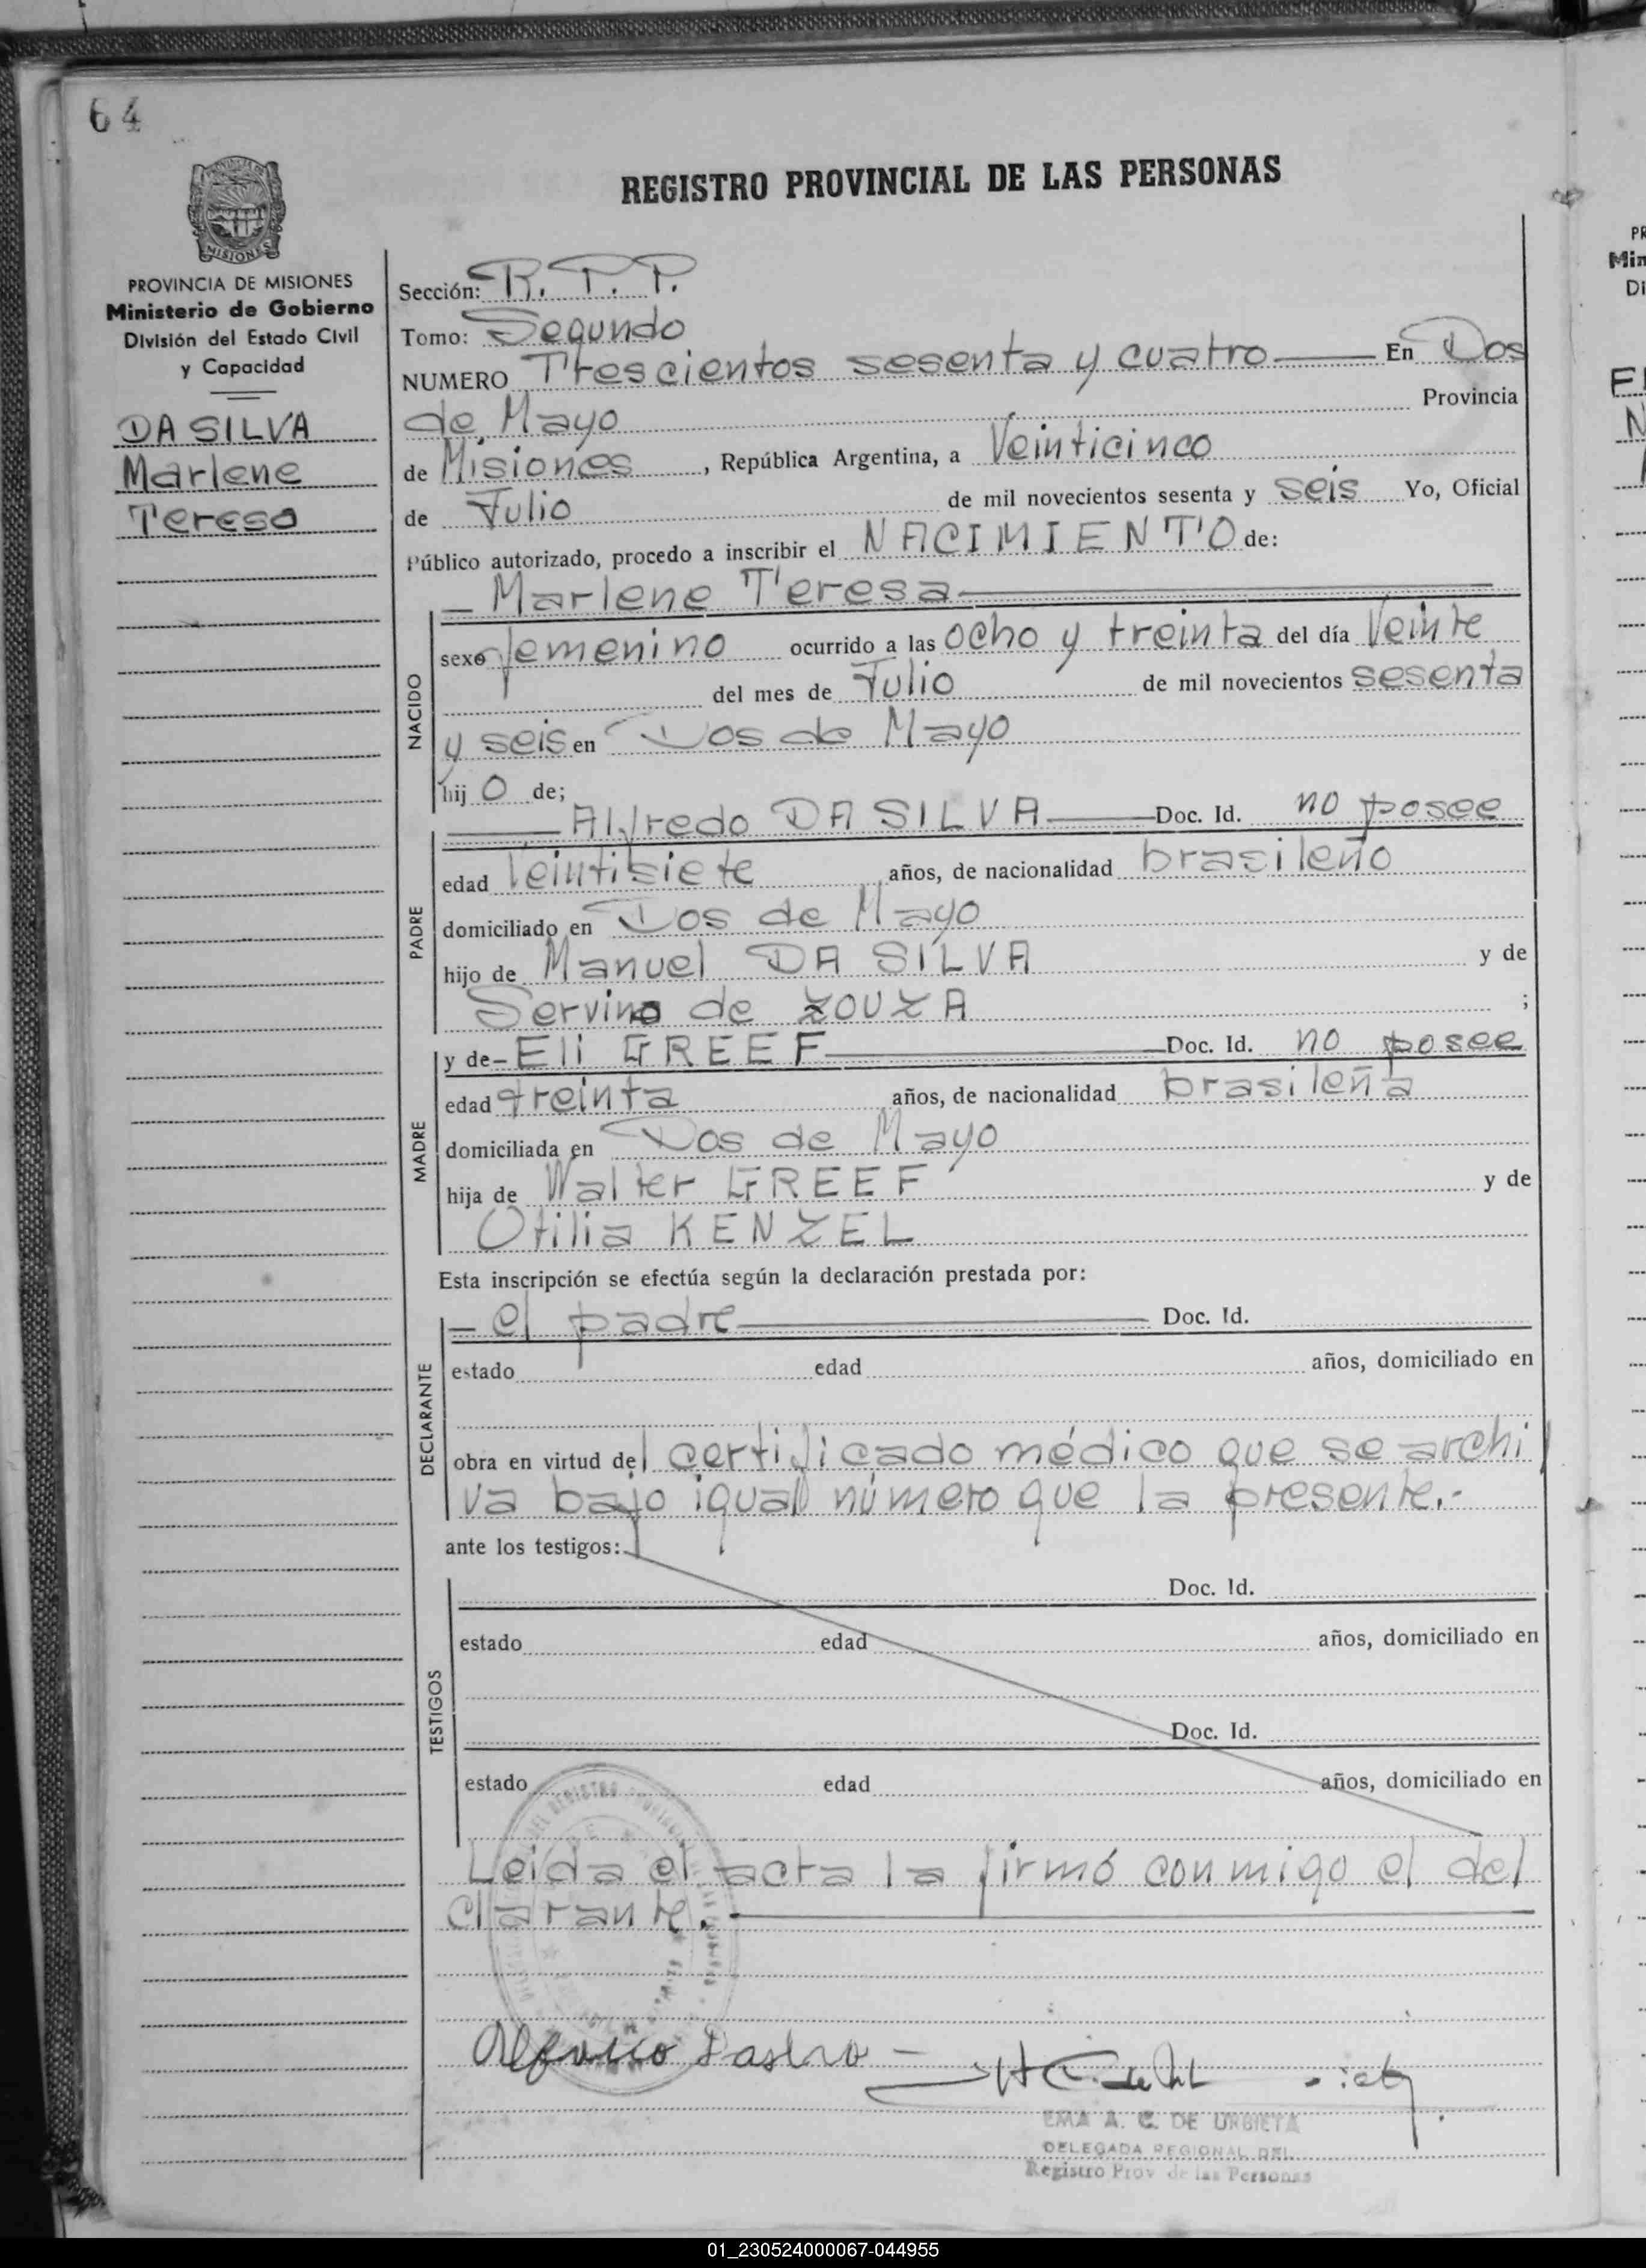 64
PROVINCIA DE
MISIONES
REGISTRO PROVINCIAL DE LAS PERSONAS
PROVINCIA DE MISIONES
Ministerio de Gobierno
División del Estado Civil
y Capacidad
DA SILVA
Marlene
Teresa
Sección: R. P. P.
Tomo: Segundo
NUMERO Trescientos sesenta y cuatro En Dos
de Mayo Provincia
de Misiones, República Argentina, a Veinticinco
de Julio de mil novecientos sesenta y seis Yo, Oficial
Público autorizado, procedo a inscribir el NACIMIENTO de:
NACIDO
- Marlene Teresa
sexo femenino ocurrido a las ocho y treinta del día Veinte
del mes de Julio de mil novecientos sesenta
y seis en Dos de Mayo
hij o de;
PADRE
Alfredo DA SILVA Doc. Id. no posee
edad Veintisiete años, de nacionalidad brasileño
domiciliado en Dos de Mayo
hijo de Manuel DA SILVA y de
Servina de ZOUZA ;
MADRE
y de - Eli GREEF Doc. Id. no posee
edad treinta años, de nacionalidad brasileña
domiciliada en Dos de Mayo
hija de Walter GREEF y de
Otilia KENZEL
Esta inscripción se efectúa según la declaración prestada por:
DECLARANTE
- el padre Doc. Id.
estado edad años, domiciliado en
obra en virtud del certificado médico que se archi
va bajo igual número que la presente.-
ante los testigos:
TESTIGOS
Doc. Id.
estado edad años, domiciliado en
Doc. Id.
estado edad años, domiciliado en
Leida el acta la firmó conmigo el del
clarante.
EMA A. C. DE URBIETA
DELEGADA REGIONAL DEL
Registro Prov de las Personas
01_230524000067-044955